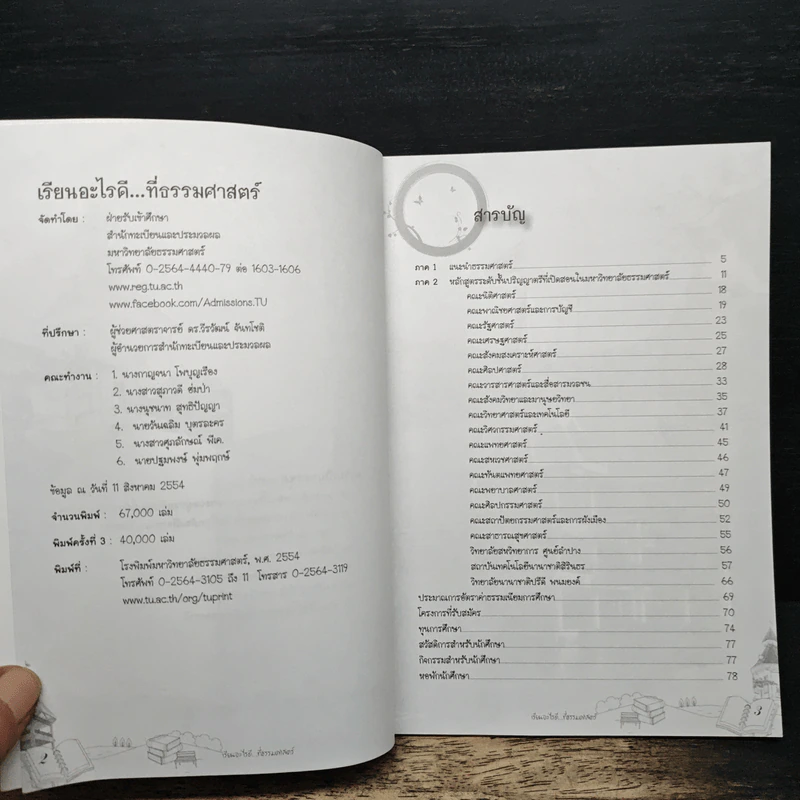 เรียนอะไรดี...ที่ธรรมศาสตร์
จัดทำโดย : ฝ่ายรับเข้าศึกษา
สำนักทะเบียนและประมวลผล
มหาวิทยาลัยธรรมศาสตร์
โทรศัพท์ 0-2564-4440-79 ต่อ 1603-1606
www.reg.tu.ac.th
www.facebook.com/Admissions.TU
ที่ปรึกษา : ผู้ช่วยศาสตราจารย์ ดร.วีรวัฒน์ จันทโชติ
ผู้อำนวยการสำนักทะเบียนและประมวลผล
คณะทำงาน : 1. นางกาญจนา โพบุญเรือง
2. นางสาวสุภาวดี ฮ่มป่า
3. นางนุชนาท สุทธิปัญญา
4. นายวันเฉลิม บุตรละคร
5. นางสาวศุภลักษณ์ พีเค.
6. นายปฐมพงษ์ พุ่มพฤกษ์
ข้อมูล ณ วันที่ 11 สิงหาคม 2554
จำนวนพิมพ์ : 67,000 เล่ม
พิมพ์ครั้งที่ 3 : 40,000 เล่ม
พิมพ์ที่ : โรงพิมพ์มหาวิทยาลัยธรรมศาสตร์, พ.ศ. 2554
โทรศัพท์ 0-2564-3105 ถึง 11 โทรสาร 0-2564-3119
www.tu.ac.th/org/tuprint
2
เรียนอะไรดี...ที่ธรรมศาสตร์
สารบัญ
ภาค 1 แนะนำธรรมศาสตร์ 5
ภาค 2 หลักสูตรระดับชั้นปริญญาตรีที่เปิดสอนในมหาวิทยาลัยธรรมศาสตร์ 11
คณะนิติศาสตร์ 18
คณะพาณิชยศาสตร์และการบัญชี 19
คณะรัฐศาสตร์ 23
คณะเศรษฐศาสตร์ 25
คณะสังคมสงเคราะห์ศาสตร์ 27
คณะศิลปศาสตร์ 28
คณะวารสารศาสตร์และสื่อสารมวลชน 33
คณะสังคมวิทยาและมานุษยวิทยา 35
คณะวิทยาศาสตร์และเทคโนโลยี 37
คณะวิศวกรรมศาสตร์ 41
คณะแพทยศาสตร์ 45
คณะสหเวชศาสตร์ 46
คณะทันตแพทยศาสตร์ 47
คณะพยาบาลศาสตร์ 49
คณะศิลปกรรมศาสตร์ 50
คณะสถาปัตยกรรมศาสตร์และการผังเมือง 52
คณะสาธารณสุขศาสตร์ 55
วิทยาลัยสหวิทยาการ ศูนย์ลำปาง 56
สถาบันเทคโนโลยีนานาชาติสิรินธร 57
วิทยาลัยนานาชาติปรีดี พนมยงค์ 66
ประมาณการอัตราค่าธรรมเนียมการศึกษา 69
โครงการที่รับสมัคร 70
ทุนการศึกษา 74
สวัสดิการสำหรับนักศึกษา 77
กิจกรรมสำหรับนักศึกษา 77
หอพักนักศึกษา 78
เรียนอะไรดี...ที่ธรรมศาสตร์
3